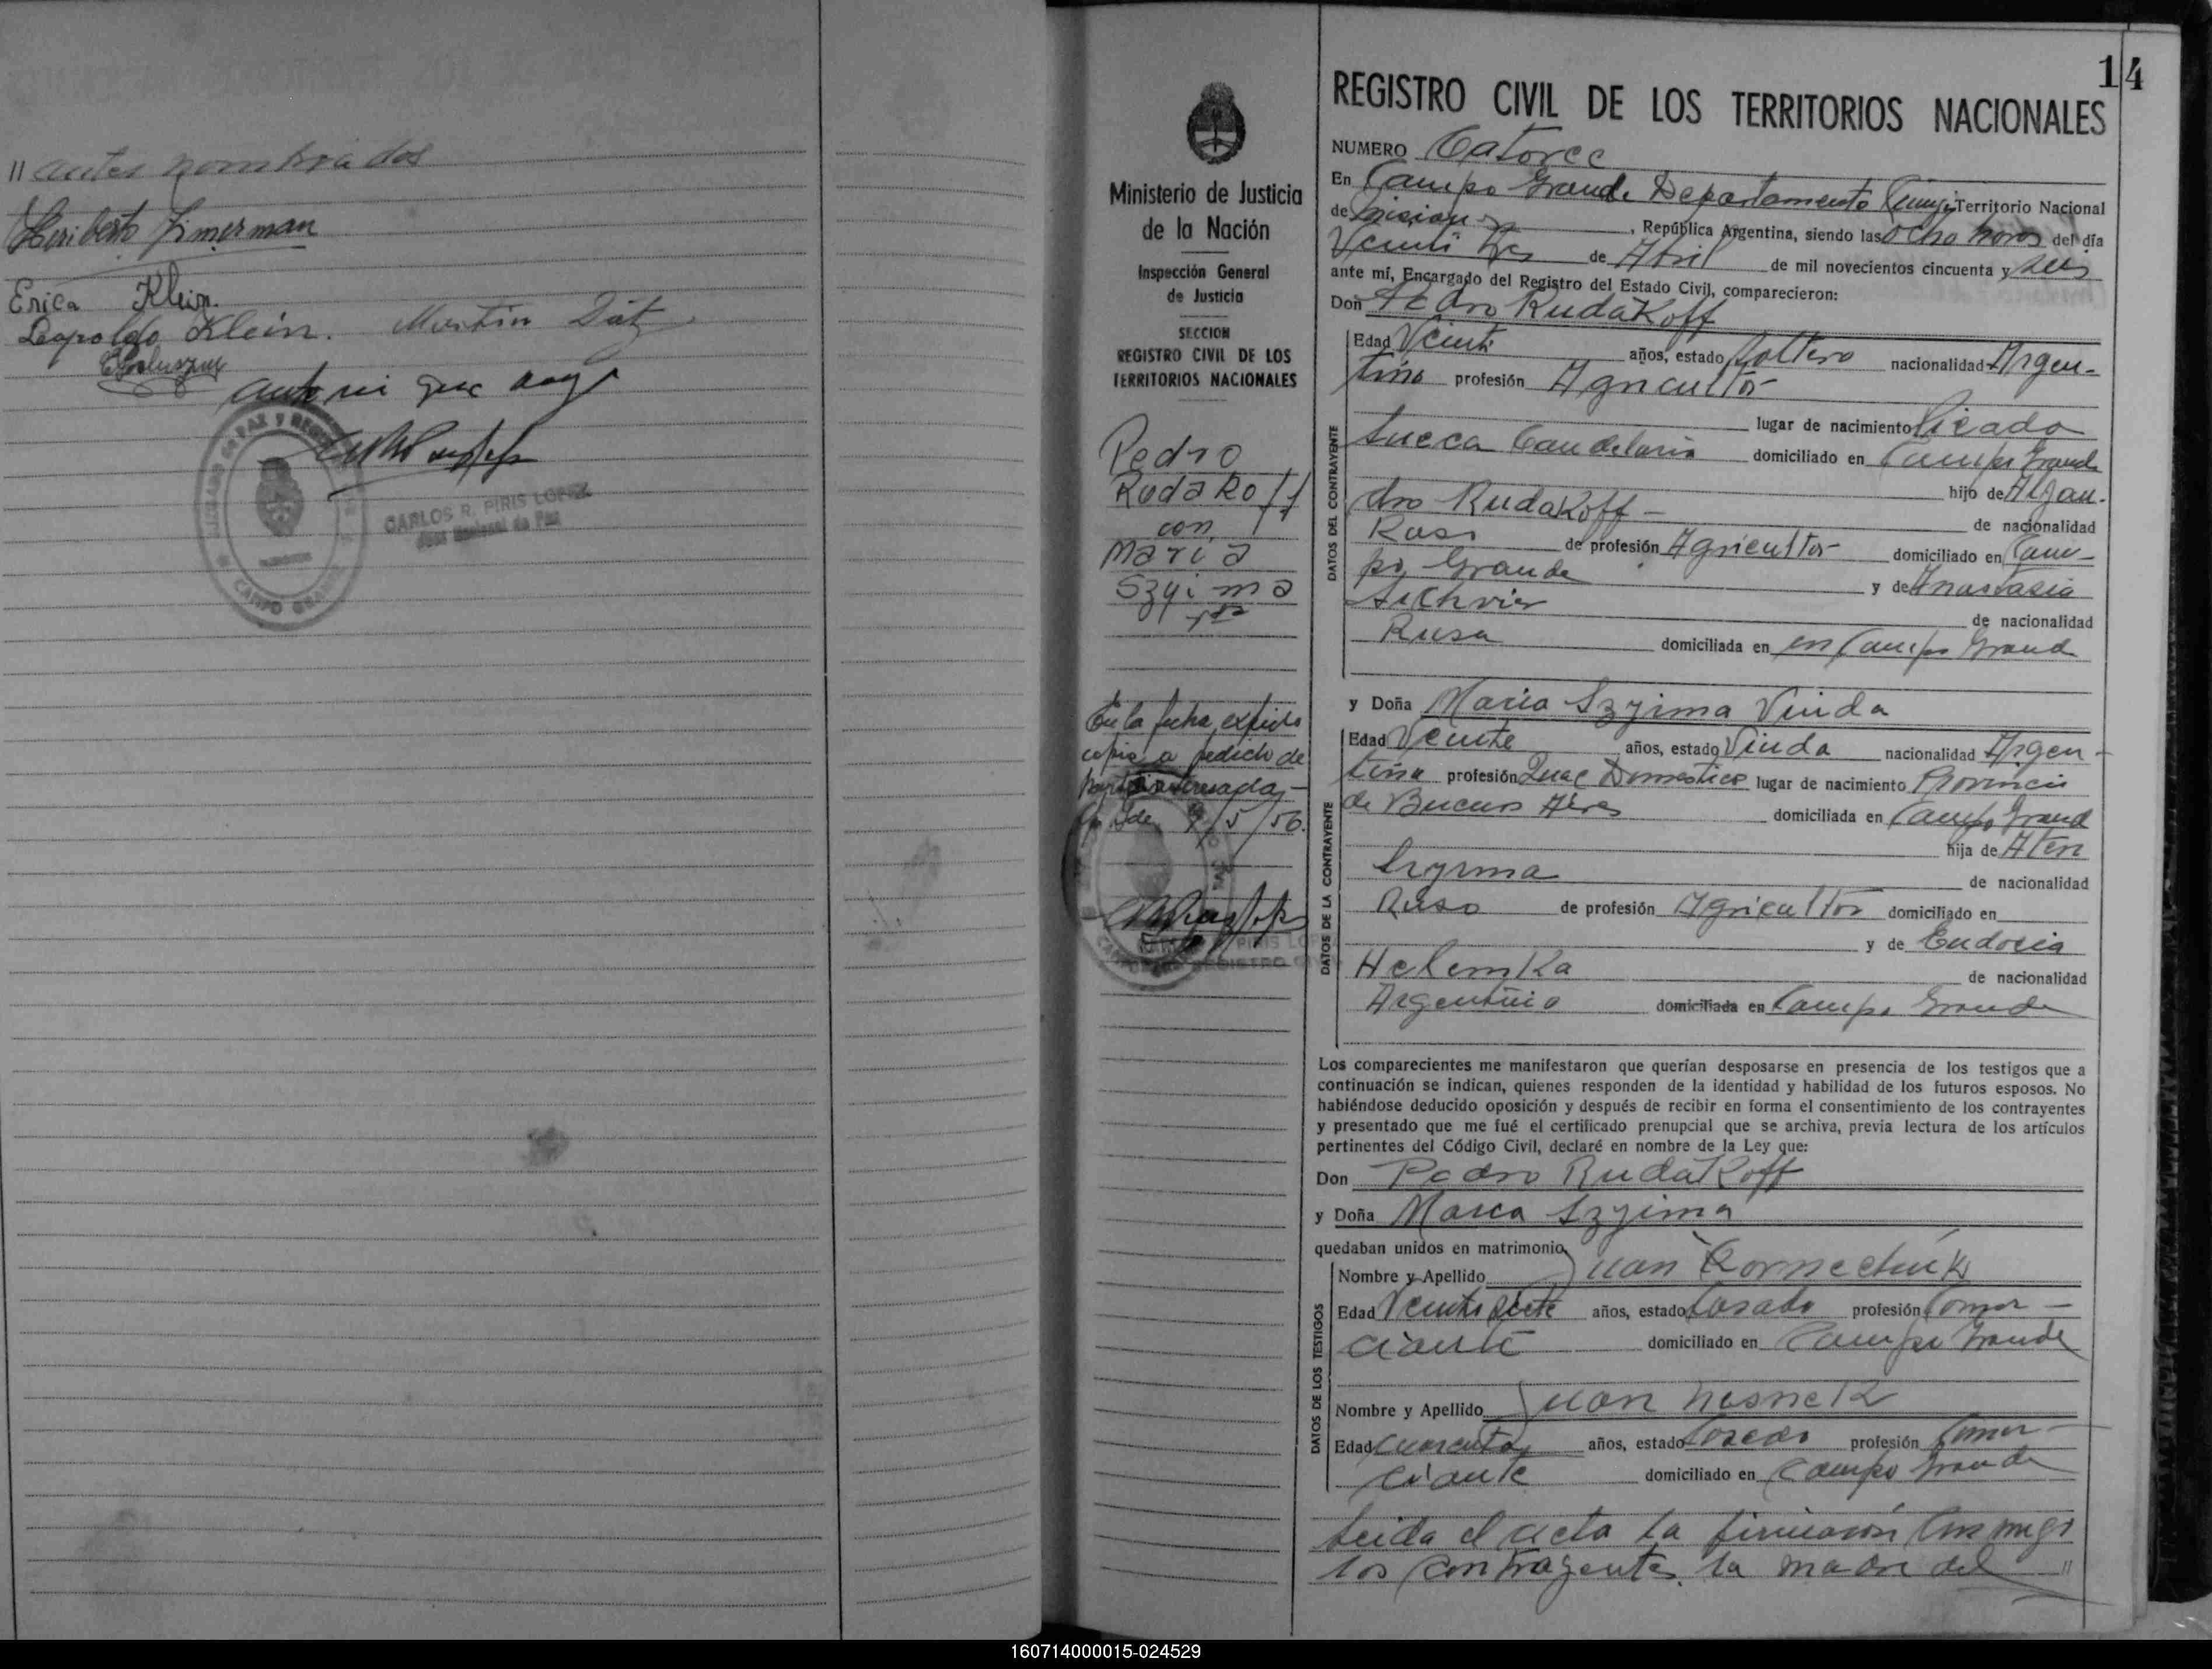 // antes nombrados
Heriberto Zimerman
Erica Klein.
Leopoldo Klein. Martin
ante mi que doy
CAMPO GRANDE
CARLOS R. PIRIS LOPEZ
Juez Nacional de Paz
Ministerio de Justicia
de la Nación
Inspección General
de Justicia
SECCION
REGISTRO CIVIL DE LOS
TERRITORIOS NACIONALES
Pedro
Rudakoff
con
Maria
Szyima
En la fecha expido
copia a pedido de
9/5/56.
14
REGISTRO CIVIL DE LOS TERRITORIOS NACIONALES
NUMERO Catorce
En Campo Grande Departamento Territorio Nacional
de Misiones, República Argentina, siendo las ocho horas del día
Veinti tres de Abril de mil novecientos cincuenta y seis
ante mí, Encargado del Registro del Estado Civil, comparecieron:
Don Pedro Rudakoff
DATOS DEL CONTRAYENTE
Edad Veinti años, estado soltero nacionalidad Argen-
tino profesión Agricultor
lugar de nacimiento Picada
Sueca Candelaria domiciliado en Campo Grande
hijo de Alejan-
dro Rudakoff - de nacionalidad
Ruso de profesión Agricultor domiciliado en Cam-
po Grande y de Anastasia
de nacionalidad
Rusa domiciliada en en Campo Grand
y Doña Maria Szyima Viuda
DATOS DE LA CONTRAYENTE
Edad Veinte años, estado Viuda nacionalidad Argen-
tina profesión Quac Domestico lugar de nacimiento Provincia
de Buenos Aires domiciliada en Campo Grand
hija de
Szyma de nacionalidad
Ruso de profesión Agricultor domiciliado en
y de Eudosia
Helemka de nacionalidad
Argentina domiciliada en Campo Grande
Los comparecientes me manifestaron que querían desposarse en presencia de los testigos que a
continuación se indican, quienes responden de la identidad y habilidad de los futuros esposos. No
habiéndose deducido oposición y después de recibir en forma el consentimiento de los contrayentes
y presentado que me fué el certificado prenupcial que se archiva, previa lectura de los artículos
pertinentes del Código Civil, declaré en nombre de la Ley que:
Don Pedro Rudakoff
y Doña Maria Szyima
quedaban unidos en matrimonio
DATOS DE LOS TESTIGOS
Nombre y Apellido Juan Kornechuk
Edad Veinti siete años, estado Casado profesión Comer-
ciante domiciliado en Campo Grande
Nombre y Apellido Juan Nesnek
Edad Cuarenta años, estado Casado profesión Comer-
ciante domiciliado en Campo Grande
Leida el acta la firmaron conmigo
los contrayentes, la madre del //
160714000015-024529